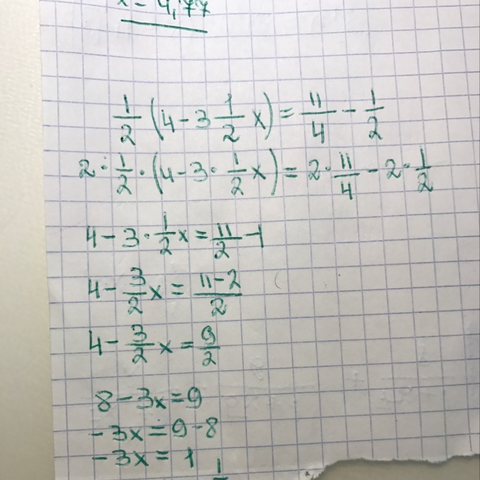 x = 4,77
1/2 (4 - 3 1/2 x) = 11/4 - 1/2
2 · 1/2 · (4 - 3 · 1/2 x) = 2 · 11/4 - 2 · 1/2
4 - 3 · 1/2 x = 11/2 - 1
4 - 3/2 x = 11-2/2
4 - 3/2 x = 9/2
8 - 3x = 9
-3x = 9 - 8
-3x = 1